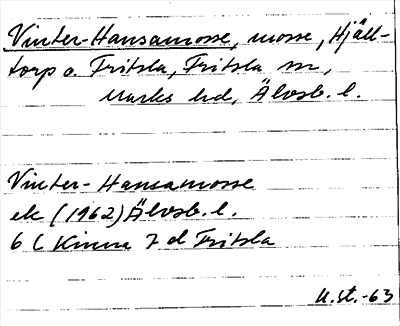 Vinter-Hansamosse, mosse, Hjäll-
torp o. Fritsla, Fritsla sn,
Marks hd, Älvsb. l.
Vinter-Hansamosse
ek (1962) Älvsb. l.
6 C Kinna 7 d Fritsla
U.st.-63